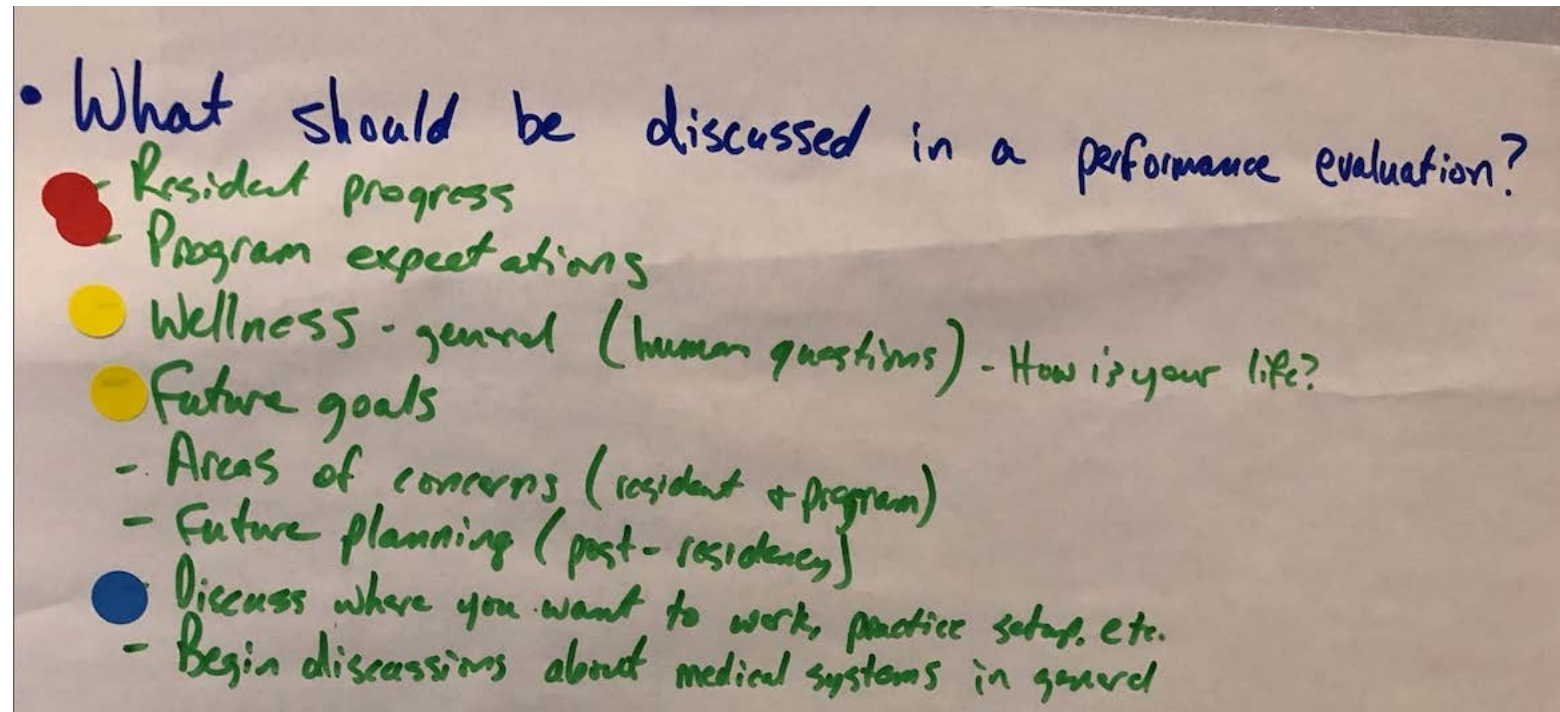 • What should be discussed in a performance evaluation?
- Resident progress
- Program expectations
Wellness - general (human questions) - How is your life?
Future goals
- Areas of concerns (resident + program)
- Future planning (post-residency)
Discuss where you want to work, practice setup, etc.
- Begin discussions about medical systems in general